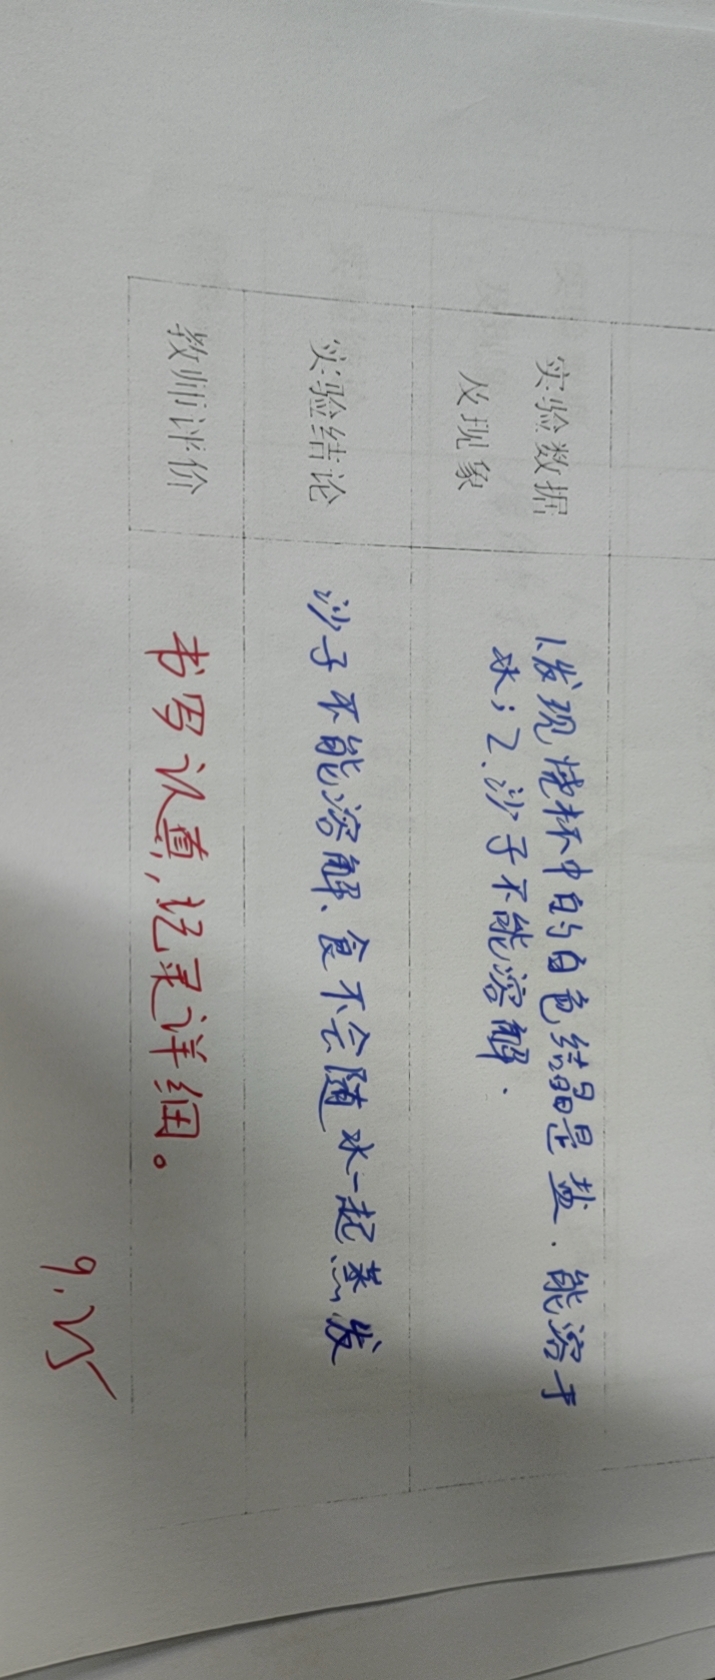 实验数据
及现象
1、发现烧杯中的白色结晶是盐．能溶于
水；2.沙子不能溶解．
实验结论
沙子不能溶解、食不会随水一起蒸发
教师评价
书写认真,记录详细。
9.25